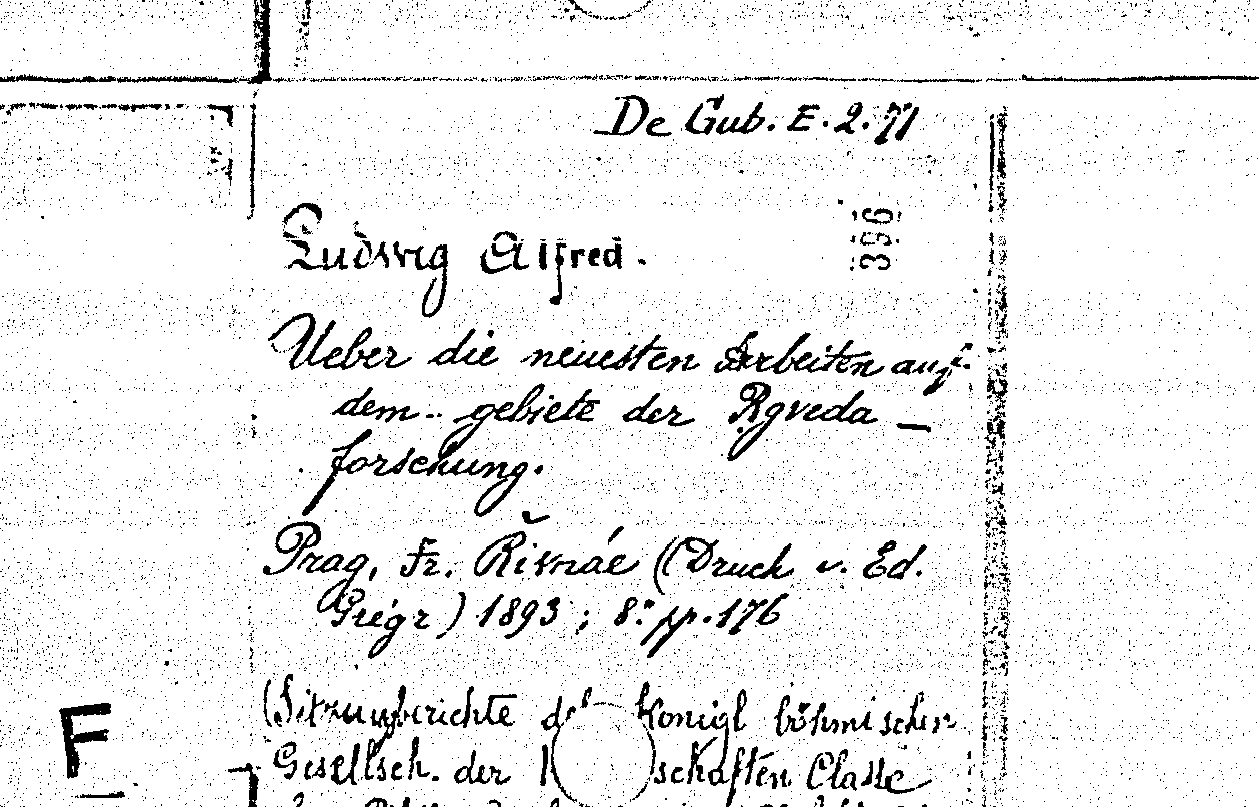 De Gub. E. 2. 71
396
Ludwig Alfred.
Ueber die neuesten Arbeiten auf
dem gebiete der Ṛgveda —
forschung.
Prag, Fr. Řivnáč (Druck v. Ed.
Grégr) 1893 ; 8.° pp. 176
(Sitzungberichte der Königl böhmischen
Gesellsch. der schaften Classe
F